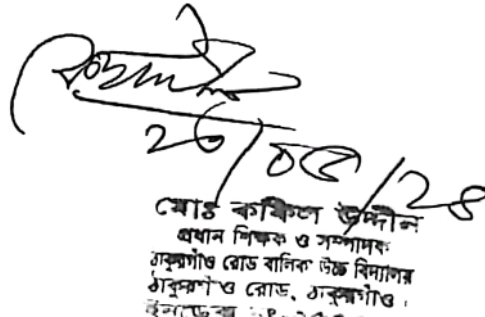 ২৬/০৫/২৪
মোঃ কফিল উদ্দীন
প্রধান শিক্ষক ও সম্পাদক
ঠাকুরগাঁও রোড বালিকা উচ্চ বিদ্যালয়
ঠাকুরগাঁও রোড, ঠাকুরগাঁও।